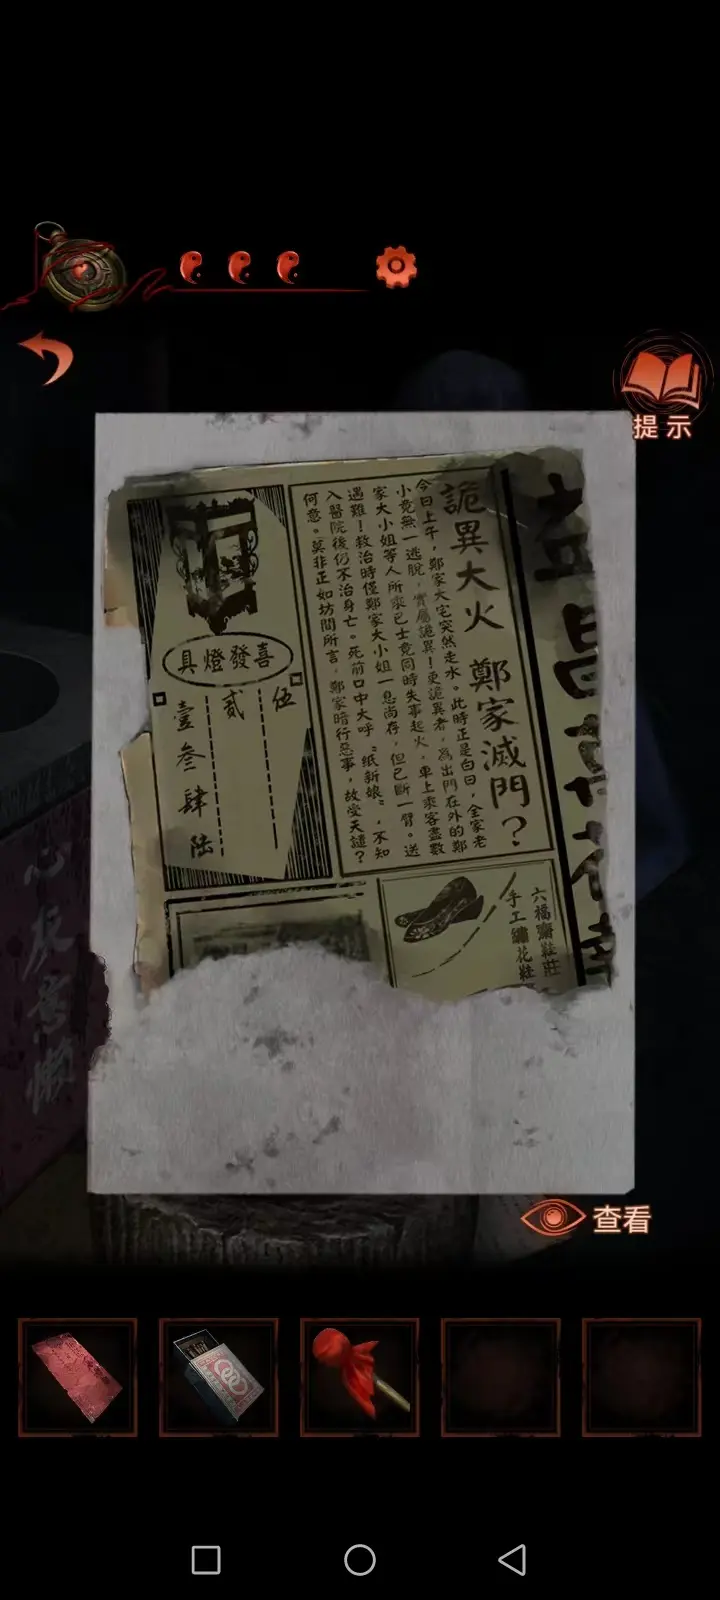 提示
詭異大火 鄭家滅門？
今日上午，鄭家大宅突然走水。此時正是白日，全家老
小竟無一逃脫，實屬詭異！更詭異者，為出門在外的鄭
家大小姐等人所乘巴士竟同時失事起火，車上乘客盡數
遇難！救治時僅鄭家大小姐一息尚存，但已斷一臂。送
入醫院後仍不治身亡。死前口中大呼“纸新娘”，不知
何意。莫非正如坊間所言，鄭家暗行惡事，故受天譴？
喜發燈具
伍
貳
壹叁肆陸
六福齋鞋莊
手工繡花鞋
心灰意懶
查看